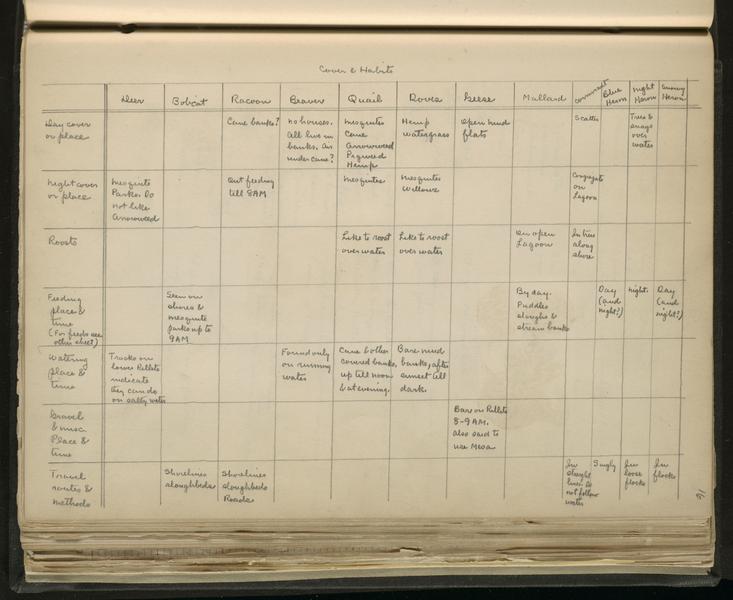 Cover & Habits
Deer Bobcat Racoon Beaver Quail Doves Geese Mallard Cormorant Blue Heron Night Heron Snowy Heron
Day cover
or place
Cane banks?
no houses.
All live in
banks. An
under cane?
mesquites
Cane
Arrowweed
Pigweed
Hemp
Hemp
watergrass
open mud
flats
Scatter
Trees &
snags
over
water
night cover
or place
mesquite
Parks. Do
not like
Arrowweed
Out feeding
till 8AM
mesquites
mesquites
willows
Congregate
on
Lagoon
Roosts
Like to roost
over water
Like to roost
over water
On open
Lagoon
In trees
along
shore
Feeding
place &
time
(For foods see
other sheet)
Seen on
shores &
mesquite
parks up to
9AM
By day.
Puddles
sloughs &
stream banks
Day
(and
night?)
night.
Day
(and
night?)
Watering
place &
time
Tracks on
lower Rillito
indicate
they can do
on salty water
Found only
on running
water
Cane & other
covered banks,
up till noon
& at evening.
Bare mud
banks, after
sunset till
dark.
Gravel
& misc.
Place &
time
Bars on Rillito
8-9AM.
also said to
use Mesa
Travel
routes &
methods
Shorelines
sloughbeds
Shorelines
sloughbeds
Roads
In
straight
lines do
not follow
water
Singly
In
loose
flocks
In
flocks
91